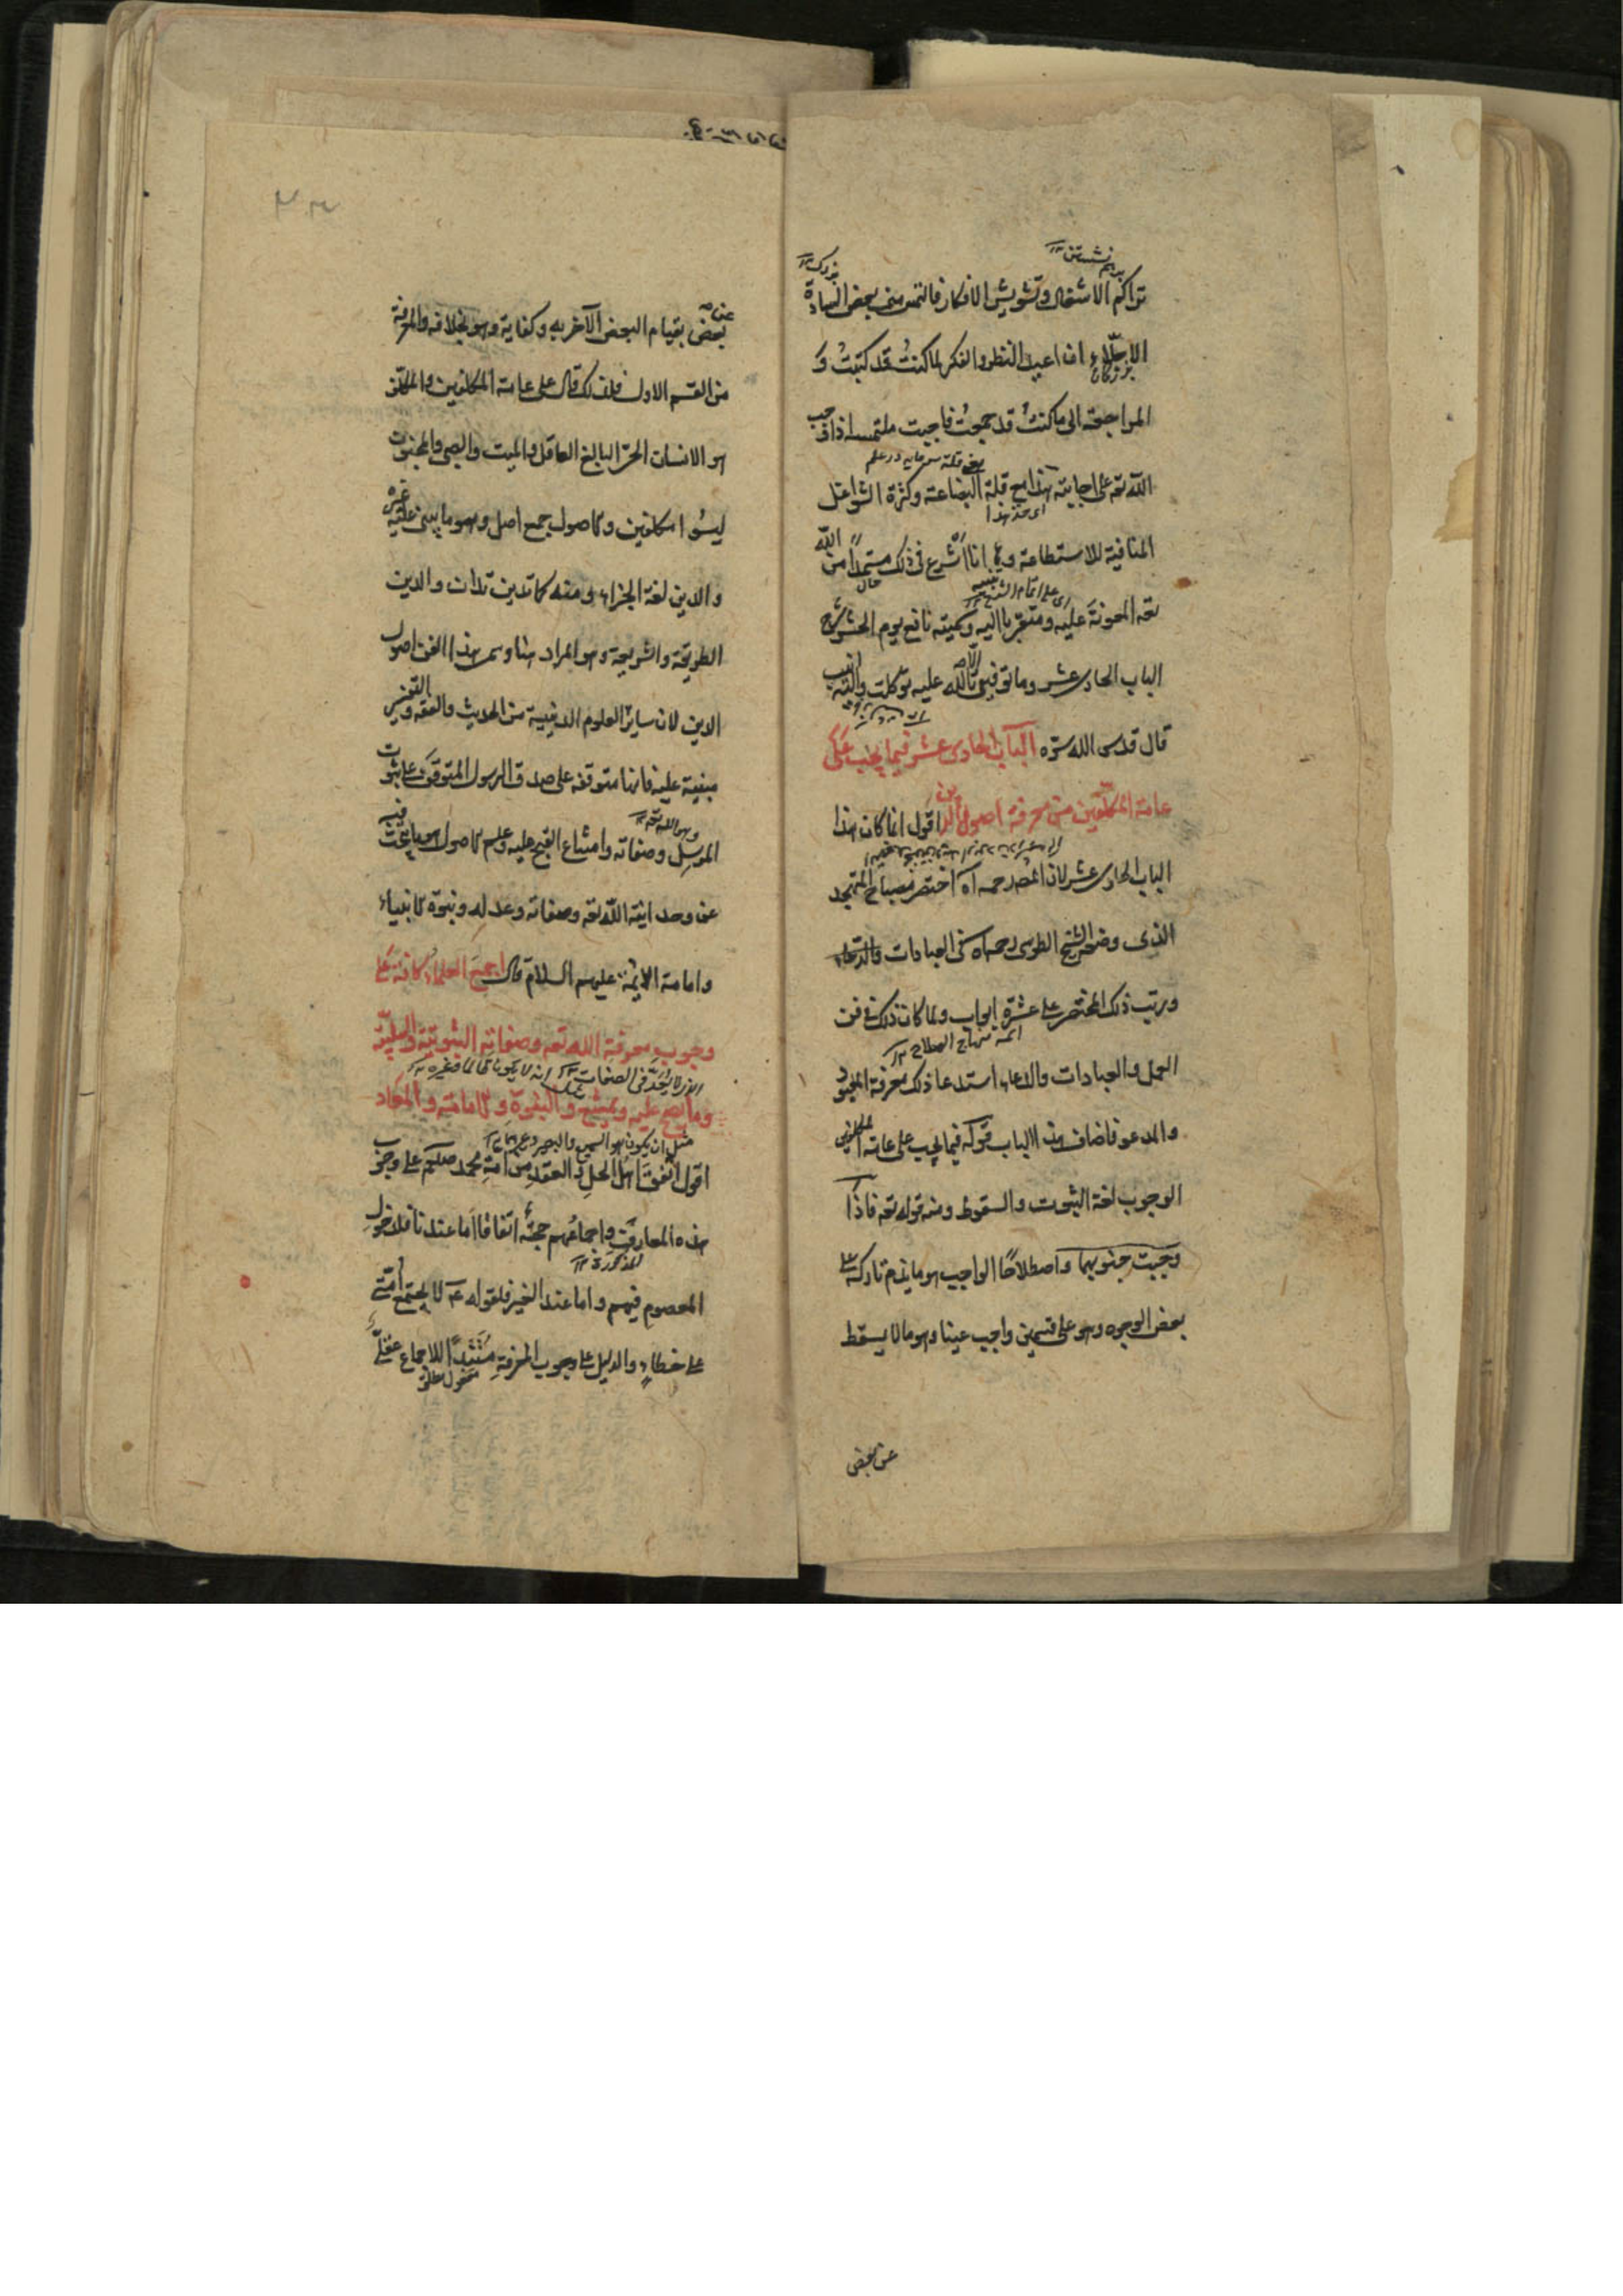 تراكم الاشغال وتشويش الافكار فالتمس مني بعض السادة
الاجلاء ان اعيد النظر والفكر لما كنت قد كتبت و
المراجعة الى ما كنت قد جمعت فاجبت ملتمسه اذ اوجب
الله تعه على اجابته هذا مع قلة البضاعة وكثرة الشواغل
المنافية للاستطاعة وها انا اشرع فى ذلك مستمدا من الله
تعه المعونة عليه ومتقربا اليه وسميته نافع يوم الحشر فى شرح
الباب الحادى عشر وما توفيقى الا بالله عليه توكلت واليه انيب
قال قدس الله سره الباب الحادى عشر فيما يجب على
عامة المكلفين من معرفة اصول الدين اقول انما كان هذا
الباب الحادى عشر لان المصه رحمه اه اختصر مصباح المتهجد
الذى وضعه الشيخ الطوسى رحمه اه فى العبادات والدعاء
ورتب ذلك المختصر على عشرة ابواب ولما كان ذلك فى فن
العمل والعبادات والدعاء استدعا ذلك معرفة المعبود
والمدعو فاضاف هذا الباب قوله فيما يجب على عامة المكلفين
الوجوب لغة الثبوت والسقوط ومنه قوله تعه فاذا
وجبت جنوبها واصطلاحا الواجب هو ما يذم تاركه على
بعض الوجوه وهو على قسمين واجب عينا وهو ما لا يسقط
عن بعض
بعض بقيام البعض الآخر به وكفاية وهو بخلافه والمعرفة
من القسم الاول فلذلك قال على عامة المكلفين والمكلف
هو الانسان الحر البالغ العاقل والميت والصبى والمجنون
ليسوا مكلفين والاصول جمع اصل وهو ما يبنى عليه غيره
والدين لغة الجزاء ومنه كما تدين تدان والدين
الطريقة والشريعة وهو المراد هنا وسمى هذا الفن اصول
الدين لان ساير العلوم الدينية من الحديث والفقه والتفسير
مبنية عليه فانها متوقفة على صدق الرسول المتوقف على ثبوت
المرسل وصفاته وامتناع القبح عليه وعلم الاصول هو ما يبحث فيه
عن وحدانية الله تعه وصفاته وعدله ونبوة الانبياء
وامامة الائمة عليهم السلام قال اجمع العلماء كافة على
وجوب معرفة الله تعه وصفاته الثبوتية والسلبية
وما يصح عليه ويمتنع والنبوة والامامة والمعاد
مثل ان يكون هو السميع والبصير وغيرهما ١٢
اقول اتفق اهل الحل والعقد من امة محمد صلعم على وجوب
هذه المعارف واجماعهم حجة اتفاقا اما عندنا فلدخول
المذكورة ١٢
المعصوم فيهم واما عند الغير فلقوله ع لا يجتمع امتى
على خطاء والدليل على وجوب المعرفة مستندا للاجماع عقلى
مفعول مطلق